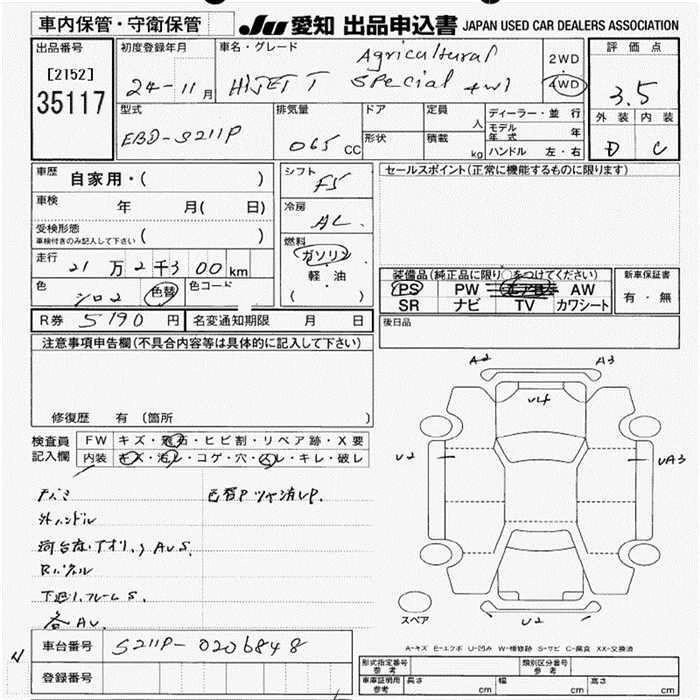 車内保管・守衛保管 JU 愛知 出品申込書 JAPAN USED CAR DEALERS ASSOCIATION
出品番号 [2152] 35117
初度登録年月 24-11月
車名・グレード HIJET T Agricultural Special 4WD
2WD 4WD
評価点 3.5
外装 内装
D C
型式 EBD-S211P
排気量 065 CC
ドア 定員 人
形状 積載 kg
ディーラー・並行
モデル年式 年
ハンドル 左・右
車歴 自家用・( )
車検 年 月( 日)
受検形態
車検付きのみ記入して下さい ( )
走行 21万2千300km
色 シロ2 色替 色コード
R券 5190円 名変通知期限 月 日
シフト F5
冷房 AC
燃料 ガソリン
軽・油
( )
セールスポイント(正常に機能するものに限ります)
装備品(純正品に限り○をつけてください)
PS PW AW
SR ナビ TV カワシート
新車保証書
有・無
後日品
注意事項申告欄(不具合内容等は具体的に記入して下さい)
修復歴 有(箇所
検査員記入欄
FW キズ・飛石・ヒビ割・リペア跡・X要
内装 キズ・汚レ・コゲ・穴・スレ・キレ・破レ
色替P ツヤ消しP.
外ハンドル
荷台
下廻り.フレームS.
各AU.
A2 A3
U4
U2 UA3
U2
スペア
A-キズ E-エクボ U-凹み W-補修跡 S-サビ C-腐食 XX-交換済
車台番号 S211P-0206848
登録番号
型式指定番号参考 類別区分番号参考
車庫証明用参考 長さ cm 幅 cm 高さ cm